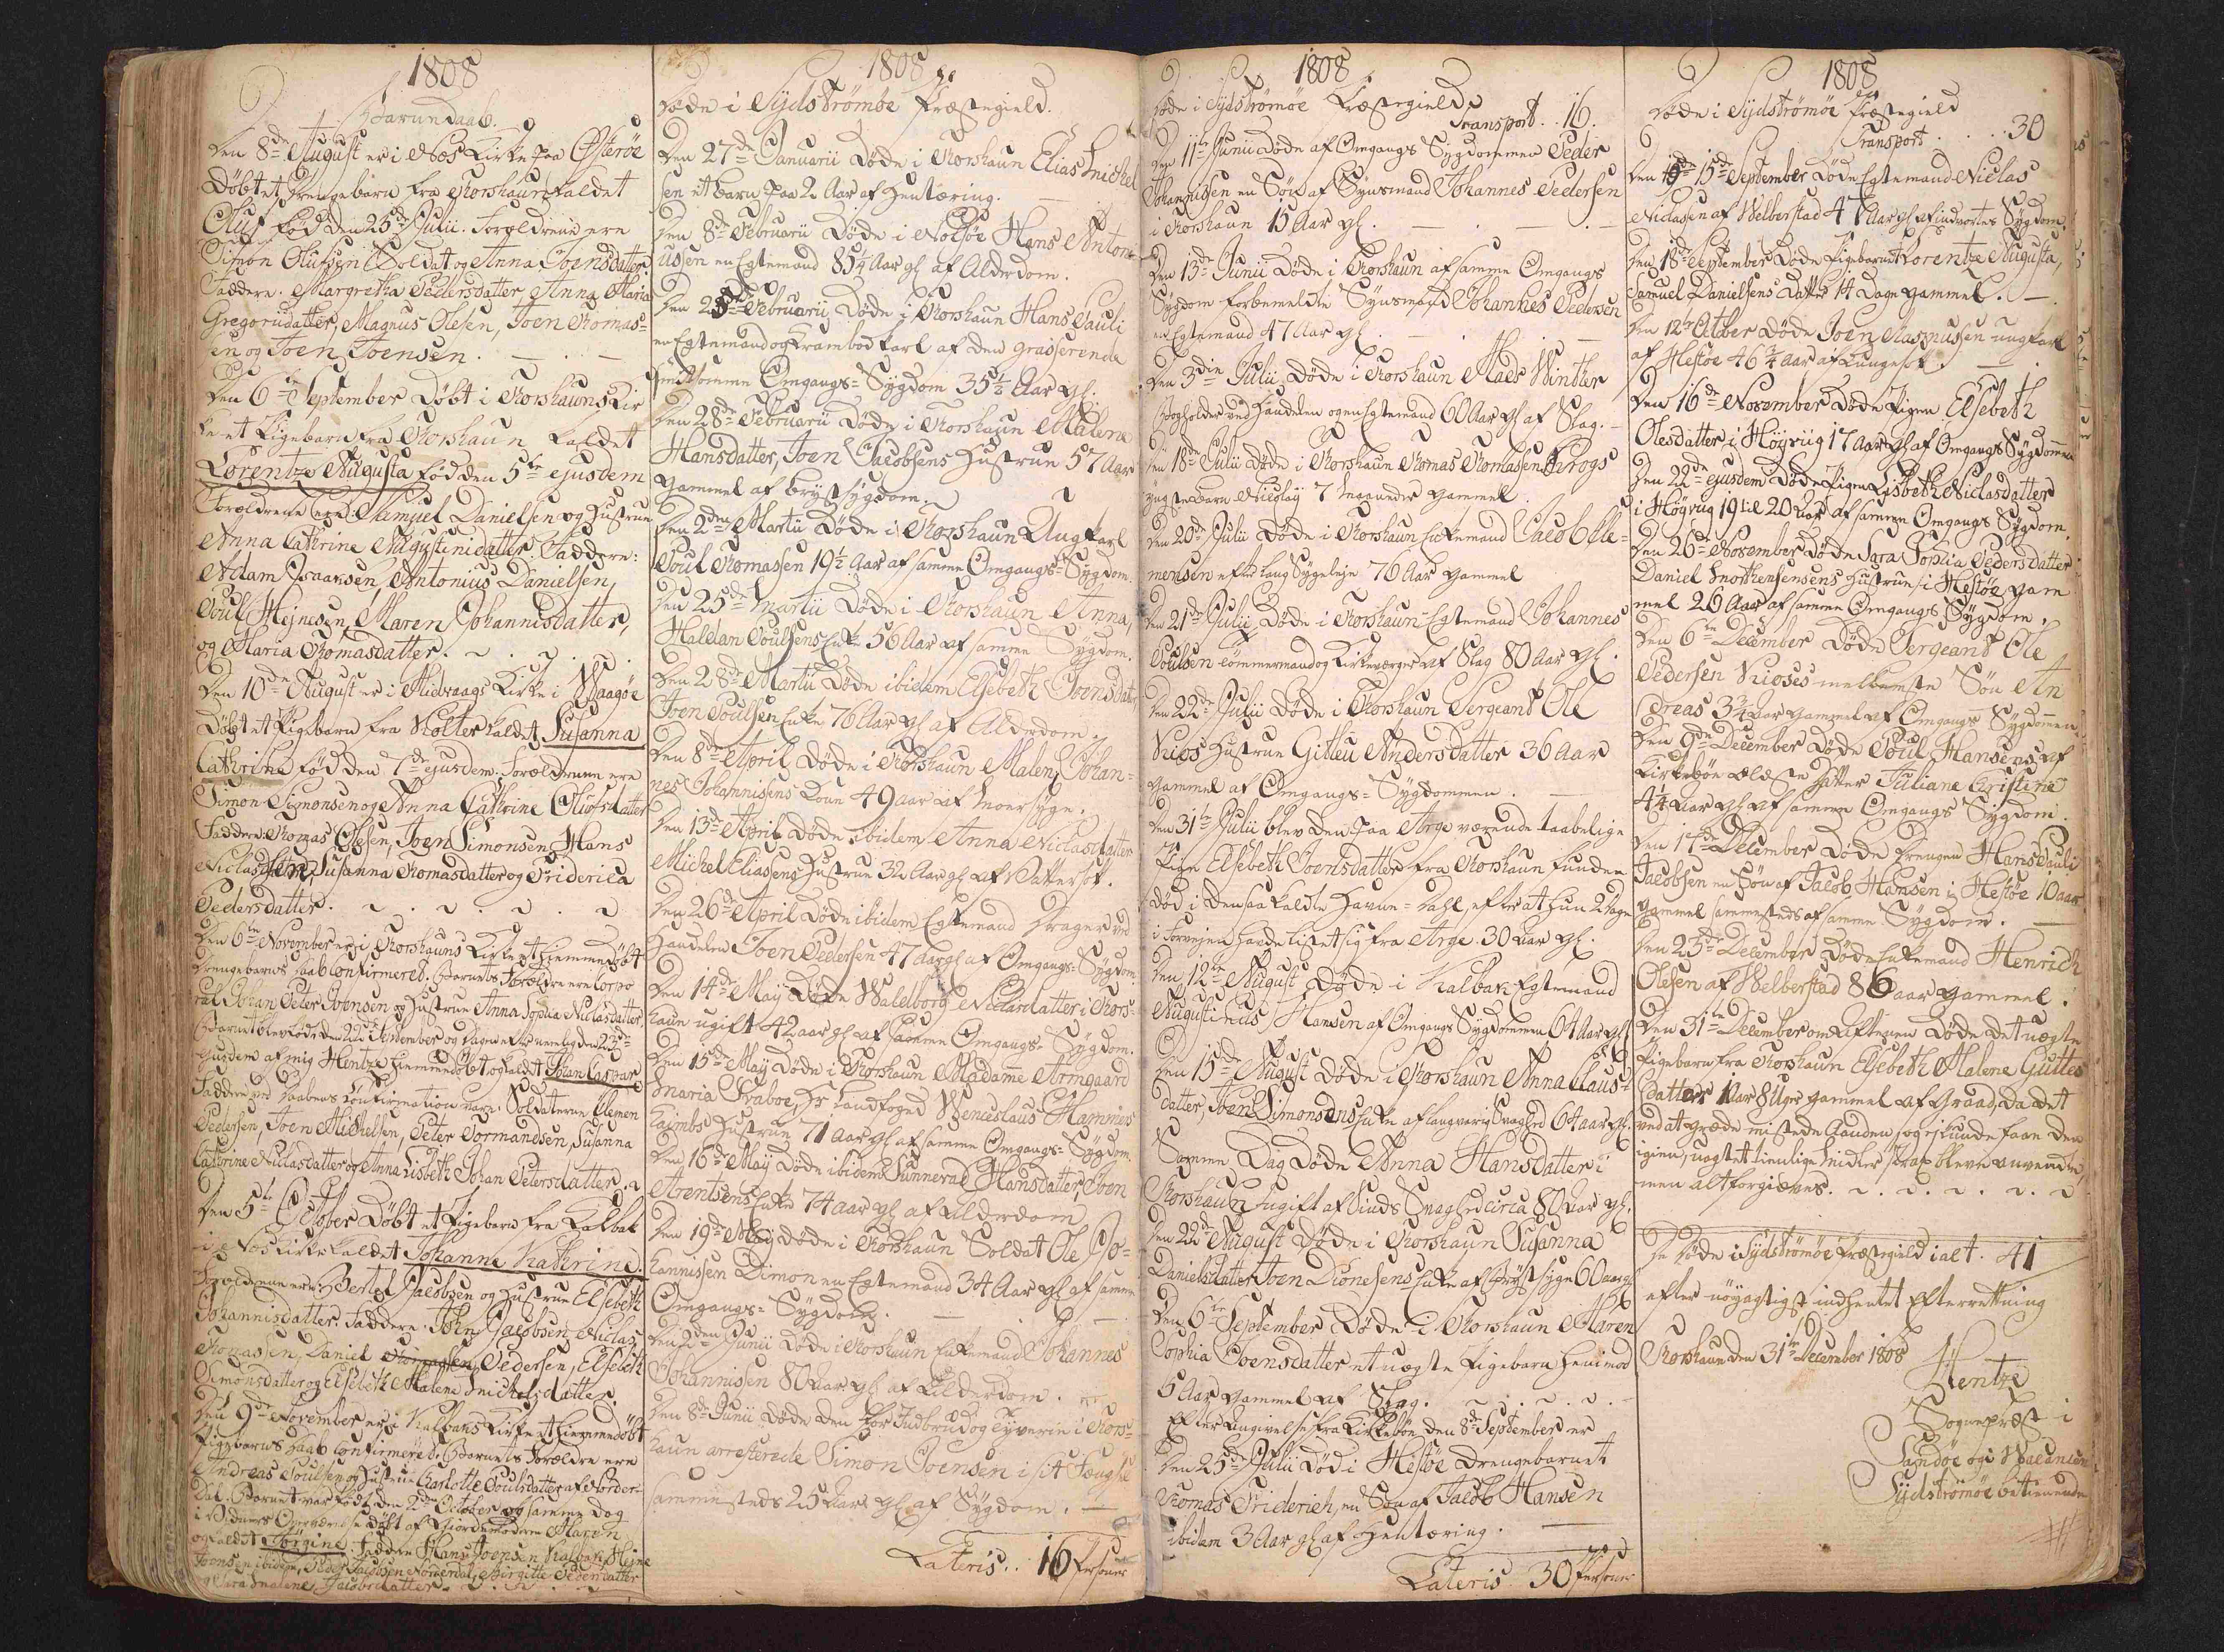 1808
Barnedaab.
Den 8de August er i Næs Kirke paa Østeröe
Döbt et Drengebarn fra Thorshaun kaldet
Oluf født den 25de Julii. Forældrene ere
Simon Olufsen Soldat og Anna Joensdatter
Faddere. Margretha Pedersdatter, Anna Maria
Gregoriidatter, Magnus Olesen, Joen Thomas-
en og Joen Joensen.
Den 6te September döbt i Thorshauns Kir
ke et Pigebarn fra Thorshaun kaldet
Lorentze Augusta född den 5te ejusdem
Forældrene ere: Samuel Danielsen og Hustrue
Anna Cathrine Augustinidatter. Faddere:
Adam Isaacsen, Antonius Danielsen,
Poul Hejnesen, Maren Johannisdatter,
og Maria Thomasdatter.
Den 10de August er i Midvaags Kirke i Waagöe
Döbt et Pigebarn fra Kolter kaldet Susanna
Cathrine född den 7de ejusdem. Forældrene ere
Simon Simonsen og Anna Cathrine Olufsdatter
Faddere: Thomas Olesen, Joen Simonsen, Hans
Niclasen, Susanna Thomasdatter og Friderica
Pedersdatter.
Den 6te November er i Thorshauns Kirke et hiemmedöbt
Drengebarns Daab confirmered. Barnets Forældre ere Corpo
ral Johan Peter Joensen og Hustrue Anna Sophia Niclasdatter
Barnet blev föd den 22de September og Dagen efter nemlig den 23de
ejusdem af mig Hentze hiemmedöbt og kaldet Johan Caspar
Faddere ved Daabens Confirmation vare: Soldaterne Clemen
Pedersen, Joen Michelsen, Peter Dormandsen, Susanna
Cathrine Niclasdatter og Anna Lisbeth Johan Petersdatter.
Den 5te October Döbt et Pigebarn fra Kalbak
i Næs Kirke kaldet Johanne Kathrine.
Forældrene ere: Bertel Jacobsen og Hustrue Elsebeth
Johannisdatter. Faddere: John Jacobsen, Niclas
Thomassen, Daniel Pedersen, Elsebeth
Simonsdatter og Elsebeth Malene Michelsdatter.
Den 9de November er i Kalbaks Kirke et hiemmedöbt
Pigebarns Daab confirmered. Barnets Forældre ere
Andreas Poulsen og Hustrue Charlotte Poulsdatter af Norder-
dal. Barnet var född den 2den October og samme Dag
i Vidners Overværelse döbt af Giordemoderen Maren
og kaldet Jörgine. Faddere Hans Joensen, Kalbak, Hejne
Joensen ibidem, Peder Jacobsen Norderdal, Birgitte Pedersdatter
og Sara Malene Jacobsdatter.
1808
Döde i Sydströmöe Præstegield.
Den 27de Januarii Döde i Thorshaun Elias Michel
sen et Barn paa 2 Aar af Hentæring.
Den 8de Februarii Döde i Nolsöe Hans Antoni
ussen en Egtemand 85¼ Aar gl af Alderdom.
Den 25de Februarii Döde i Thorshaun Hans Pauli
en Egtemand og Krambod Karl af den grasserende
Omgangs-Sygdom 35½ Aar gl.
Den 28de Februarii Döde i Thorshaun Malene
Hansdatter, Joen Jacobsens Hustrue 57 Aar
gammel af Brystsygdom.
Den 2den Martii Döde i Thorshaun Ungkarl
Poul Thomassen 19½ Aar af samme Omgangs-Sygdom.
Den 25de Martii Döde i Thorshaun Anna,
Haldan Poulsens Enke 56 Aar af samme Sygdom.
Den 28de Martii Döde ibidem Elsebeth Joensdatter
Joen Poulsens Enke 76 Aar gl af Alderdom.
Den 8de April Döde i Thorshaun Malene Johan-
nes Johannisens Kone 49 Aar af Moersyge.
Den 13de April Döde ibidem Anna Niclasdatter
Michel Eliassens Hustrue 32 Aar gl af Vattersot.
Den 26de April Döde ibidem Egtemand Drager ved
Handelen Joen Pedersen 47 Aar gl af Omgangs-Sygdom.
Den 14de Maj Döde Walelborg Niclasdatter i Thors-
haun ugift 42 aar gl af samme Omgangs-Sygdom.
Den 15de Maj Döde i Thorshaun Madame Armgaard
Maria Svaboe, Hr Landfoged Wenceslaus Hammers
haimbs Hustrue 71 Aar gl af samme Omgangs-Sygdom.
Den 16de Maj Döde ibidem Sunneva Hansdatter, Joen
Arentsens Enke 74 aar gl af Alderdom
Den 19de Maj Döde i Thorshaun Soldat Ole Jo-
hannissen Dimon en Egtemand 34 Aar gl af samme
Omgangs-Sygdom.
Den 2den Junii Döde i Thorshaun Enkemand Johannes
Johannissen 80 Aar gl af Alderdom.
Den 8de Junii Döde den for Indbrud og Tyverie i Thors-
haun arresterede Simon Joensen i sit Fængsel
sammesteds 25 Aar gl af Sygdom.
Lateris.. 16 Personer
1808
Döde i Sydströmöe Præstegield
Transport.. 16.
Den 11te Junii Döde af Omgangs Sygdommen Peder
Johannisen en Sön af Synsmand Johannes Pedersen
i Thorshaun 15 Aar gl.
Den 13de Junii Döde i Thorshaun af samme Omgangs
Sygdom forbemeldte Synsmand Johannes Pedersen
en Egtemand 47 Aar gl.
Den 3die Julii Döde i Thorshaun Mads Winther
Bogholder ved Handelen og en Egtemand 60 Aar gl af Slag.
Den 18de Julii Döde i Thorshaun Thomas Thomasen Krogs
yngste Barn Nicolaj 7 Maaneder gammel.
Den 20de Julii Döde i Thorshaun Enkemand Jacob Cle-
mensen efter lang Sygeleje 76 Aar gammel
Den 21de Julii Döde i Thorshaun Egtemand Johannes
Poulsen Tömmermand og Kirkeværger af Slag 80 Aar gl.
Den 22de Julii Döde i Thorshaun Sergeant Ole
Vioes Hustrue Gitleu Andersdatter 36 Aar
gammel af Omgangs-Sygdommen.
Den 31te Julii blev den paa Arge værende taabelige
Pige Elsebeth Joensdatter fra Thorshaun funden
död i den saa kaldte Havne-Dahl, efter at hun 2 Dage
i Forvejen havde listet sig fra Arge. 30 Aar gl.
Den 12te August Döde i Kalbak Egtemand
Augustinus Hansen af Omgangs Sygdommen 64 Aar gl.
Den 15de August Döde i Thorshaun Anna Claus-
datter, Joen Simonsens Enke af langvarig Svaghed 64 aar gl.
Samme Dag Döde Anna Hansdatter i
Thorshaun ugift af Sinds Svaghed circa 80 Aar gl.
Den 22de August Döde i Thorshaun Susanna
Danielsdatter Joen Dionesens Enke af Brystsyge 60 aar gl
Den 6te September Döde i Thorshaun Maren
Sophia Joensdatter et uægte Pigebarn henimod
6 Aar gammel af Slag.
Efter Angivelse fra Kirkeböe den 8de September er
Den 25de Julii Död i Hestöe Drengebarnet
Thomas Friderich, en Sön af Jacob Hansen
ibidem 3 Aar gl af Hentæring.
Lateris. 30 Personer
1808
Döde i Sydströmöe Præstegield
Transport . . . 30
Den 15de September Döde Egtemand Niclas
Niclasen af Welberstad 47 Aar gl af indvortes Sygdom.
Den 18de September Döde Pigebarnet Lorentze Augusta,
Samuel Danielsens Datter 14 Dage gammel.
Den 12te Octber Döde Joen Rasmussen ungkarl
af Hestöe 46¼ Aar af Lungesot.
Den 16de November Döde Pigen Elsebeth
Olesdatter i Höyviig 17 Aar gl af Omgangs Sygdommen
Den 22de ejusdem Döde Pigen Lisbeth Niclasdatter
i Höyviig 19 til 20 Aar af samme Omgangs Sygdom.
Den 26de November Döde Sara Sophia Pedersdatter
Daniel Mortensens Hustrue i Hestöe gam
mel 26 Aar af samme Omgangs Sygdom.
Den 6te December Döde Sergeant Ole
Pedersen Vioses mellemste Sön An
dreas 3¼ Aar gammel af Omgangs Sygdommen
Den 9de December Döde Poul Hansens af
Kirkeböe ældste Datter Juliane Christine
4¼ Aar gl af samme Omgangs Sygdom.
Den 17de December Döde Drengen Hans Pauli
Jacobsen en Sön af Jacob Hansen i Hestöe 10 aar
gammel sammesteds af samme Sygdom.
Den 23de December Döde Enkemand Henrich
Olesen af Welberstad 86 aar gammel.
Den 31te December om Aftenen Döde det uægte
Pigebarn fra Thorshaun Elsebeth Malene Guttes
datter 1 Aar 8 Uger gammel af Graad, da det
ved at græde mistede Aanden, og ej kunde faae den
igien, uagtet tienlige Midler strax bleve anvendte,
men alt forgieves.
De Döde i Sydströmöe Præstegield i alt. 41
efter nöyagtigst indhentet Efterretning
Thorshaun den 31te December 1808
Hentze
Sognepræst i
Sandöe og i Vacancen
Sydströmöe betienende